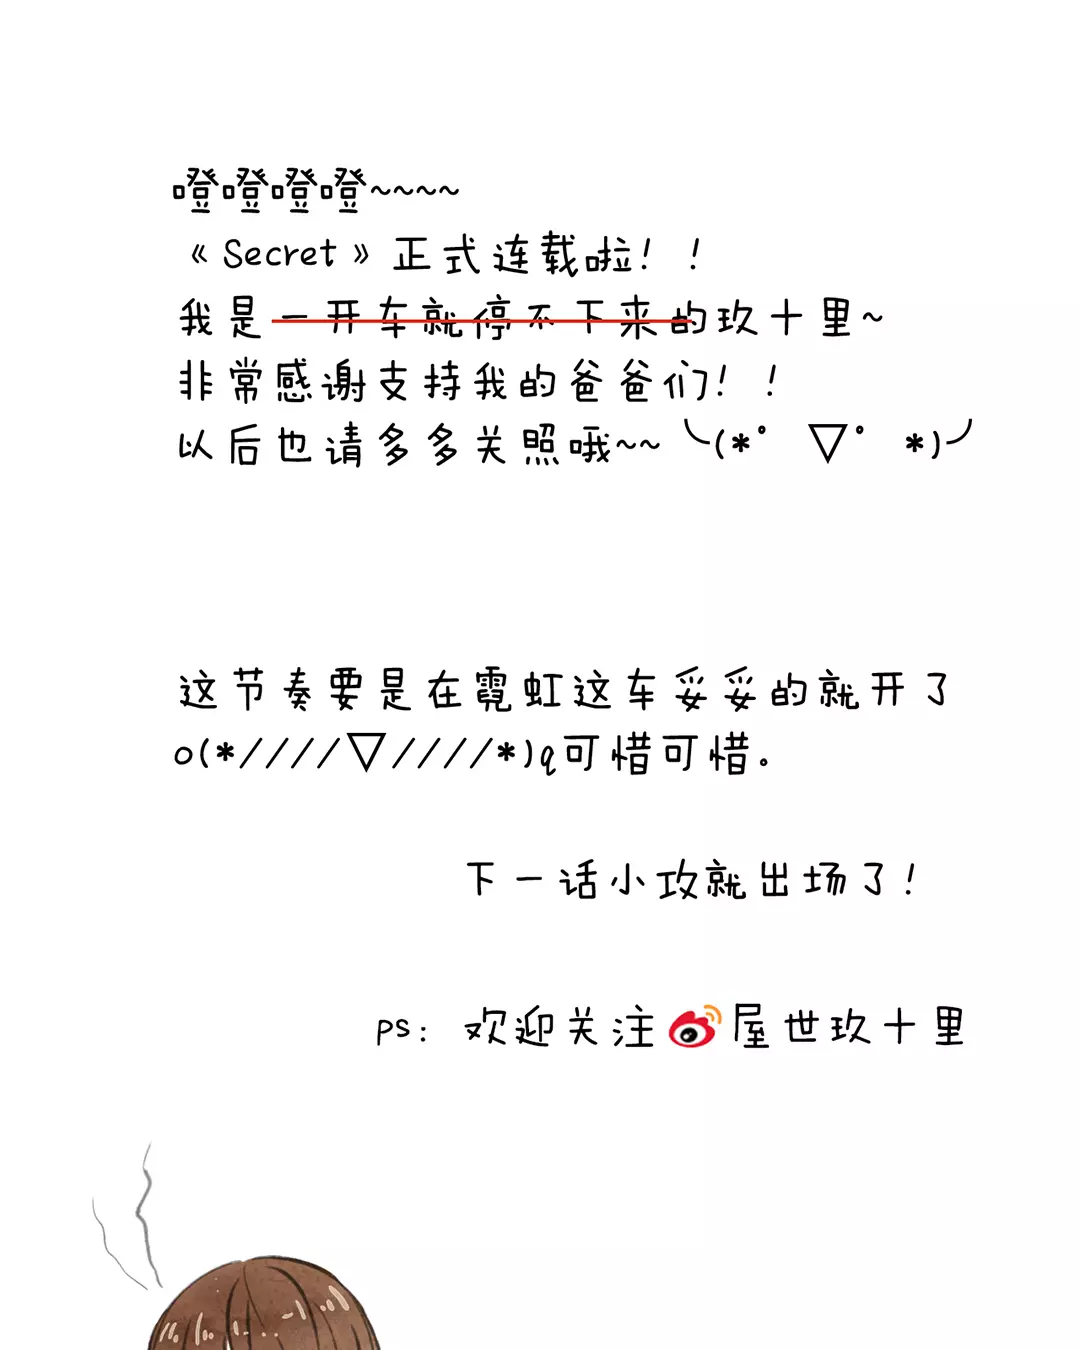 噔噔噔噔~~~~
《Secret》正式连载啦！！
我是一开车就停不下来的玖十里~
非常感谢支持我的爸爸们！！
以后也请多多关照哦~~╰(*°▽°*)╯
这节奏要是在霓虹这车妥妥的就开了
o(*////▽////*)q可惜可惜。
下一话小攻就出场了！
ps：欢迎关注屋世玖十里